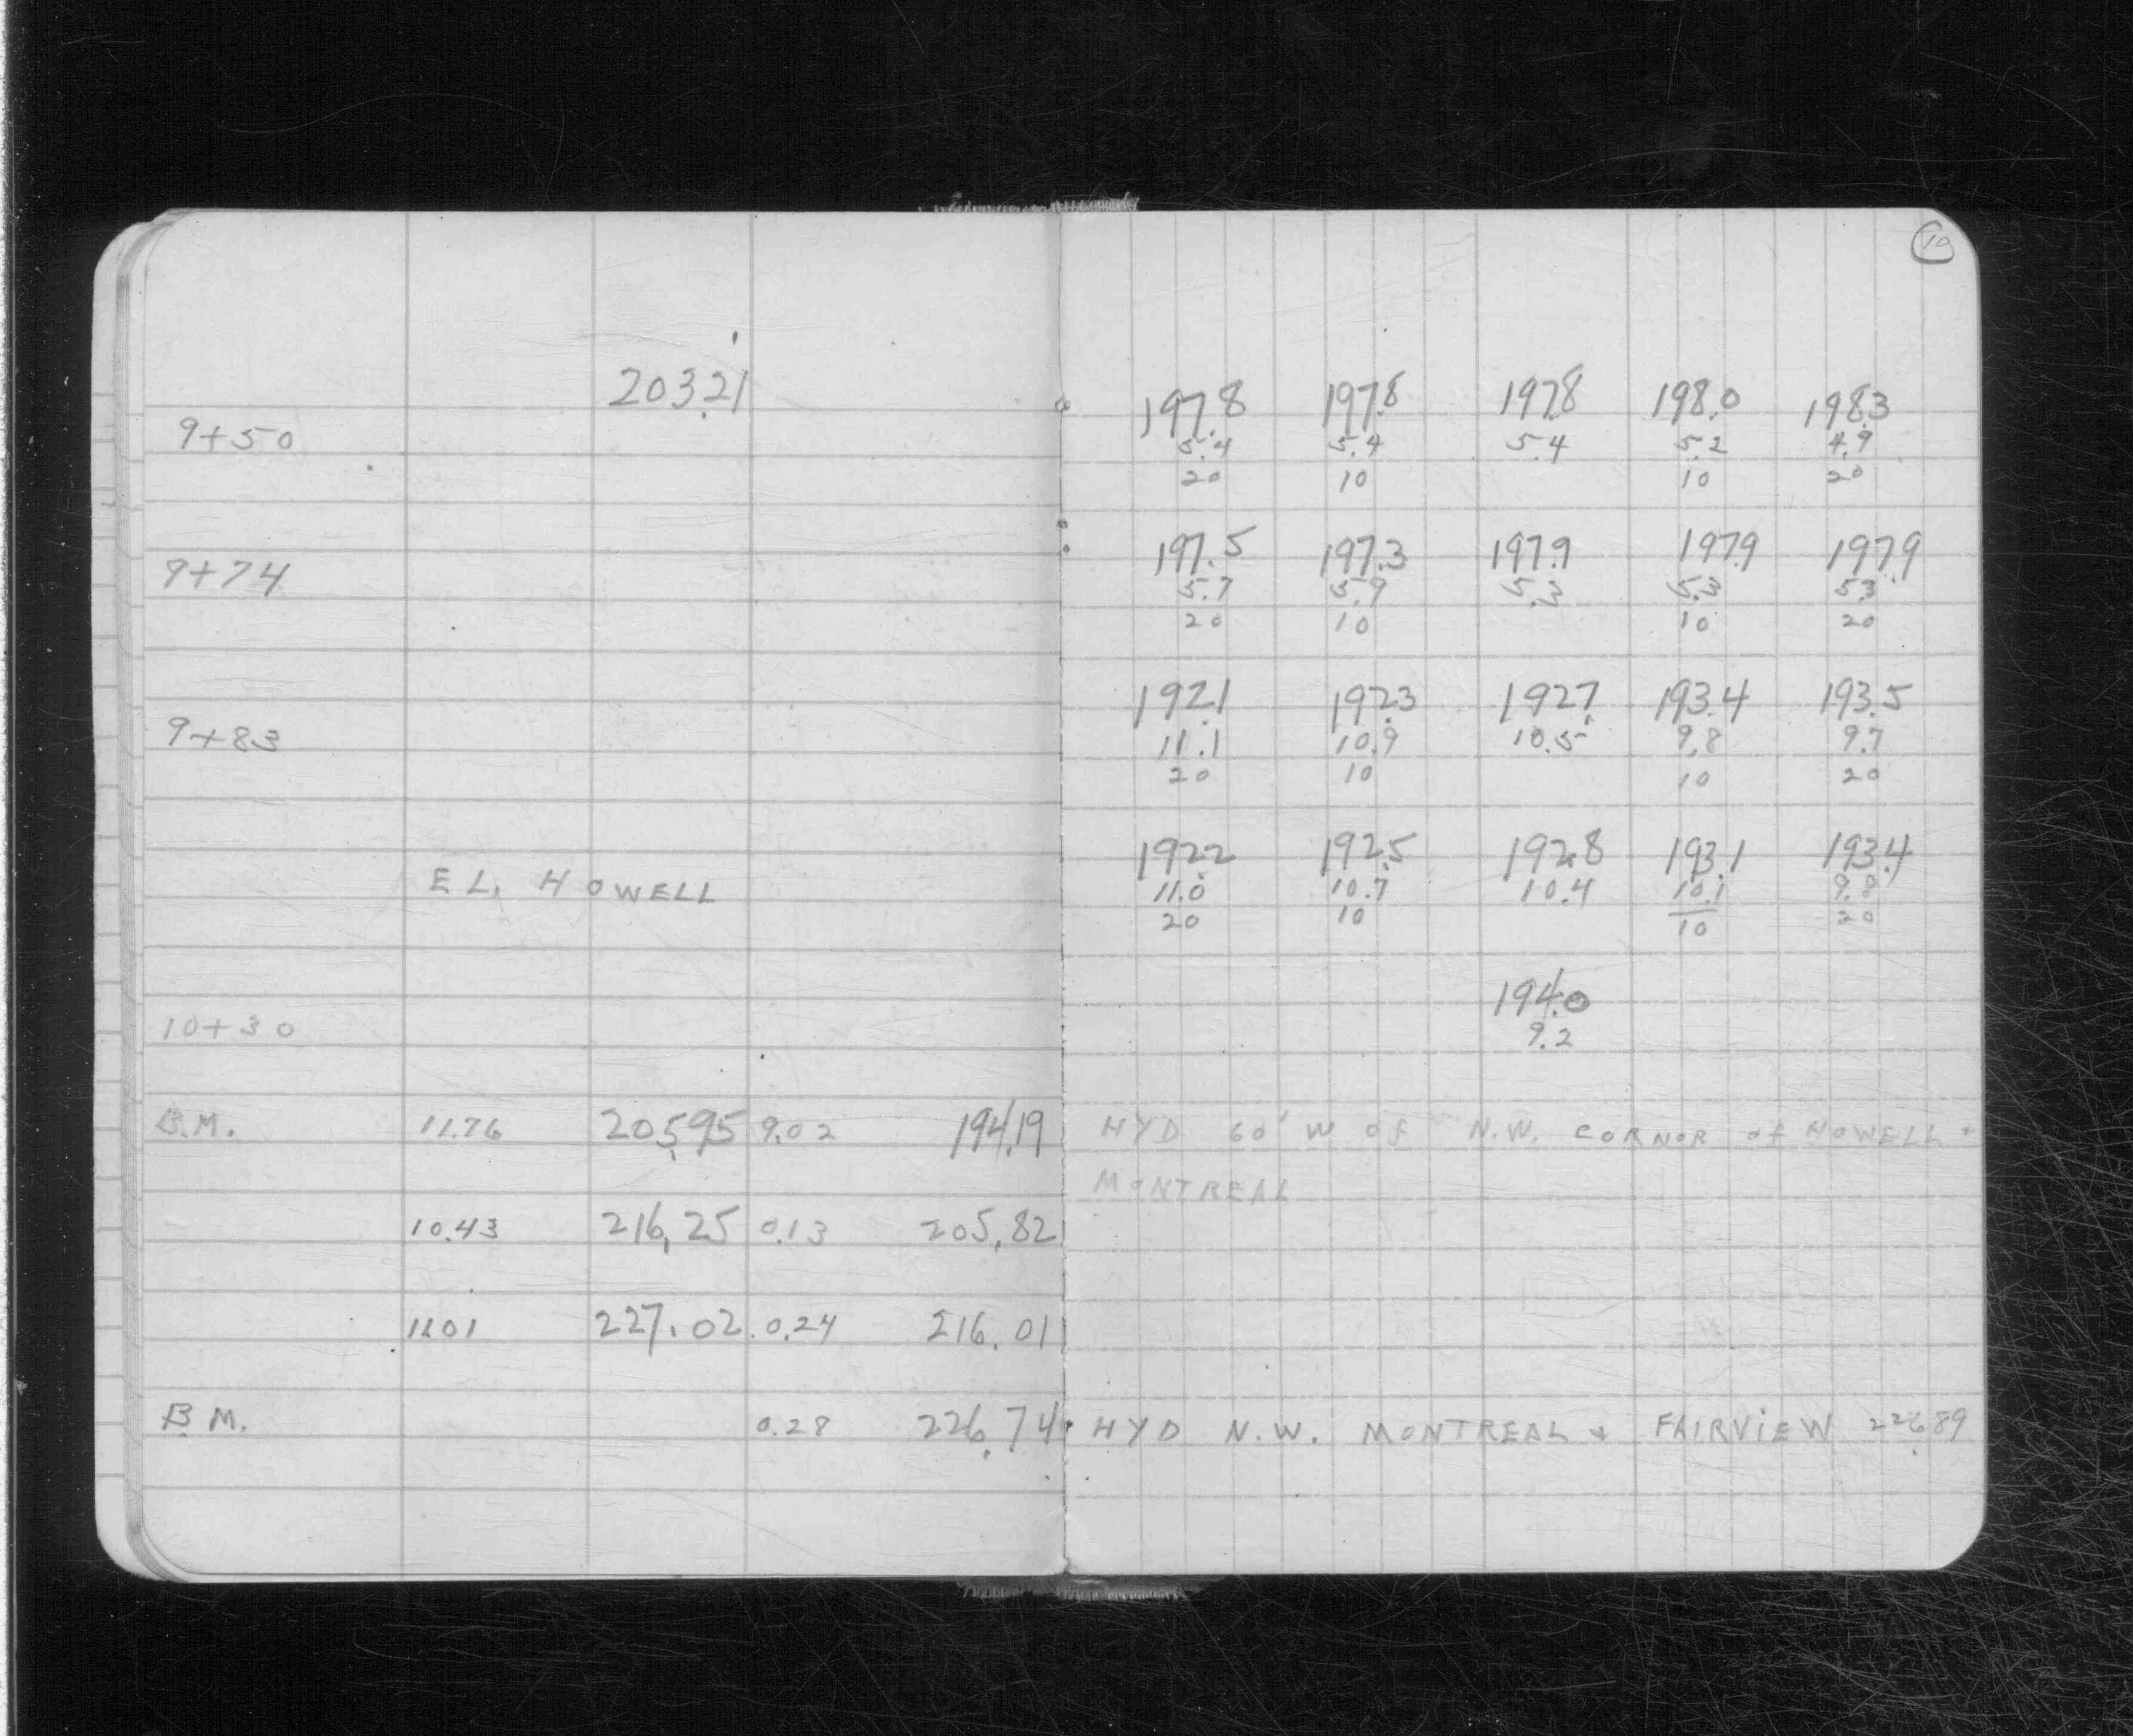 10
203.21
197.8 197.8 197.8 198.0 198.3
9+50 5.4 5.4 5.4 5.2 4.9
20 10 10 20
197.5 197.3 197.9 197.9 197.9
9+74 5.7 5.9 5.3 5.3 5.3
20 10 10 20
192.1 192.3 192.7 193.4 193.5
9+83 11.1 10.9 10.5 9.8 9.7
20 10 10 20
192.2 192.5 192.8 193.1 193.4
EL. HOWELL 11.0 10.7 10.4 10.1 9.8
20 10 10 20
194.0
10+30 9.2
B.M. 11.76 205.95 9.02 194.19 HYD 60' W of N.W. CORNOR of HOWELL +
MONTREAL
10.43 216.25 0.13 205.82
11.01 227.02 0.24 216.01
B.M. 0.28 226.74 HYD N.W. MONTREAL + FAIRVIEW 226.89